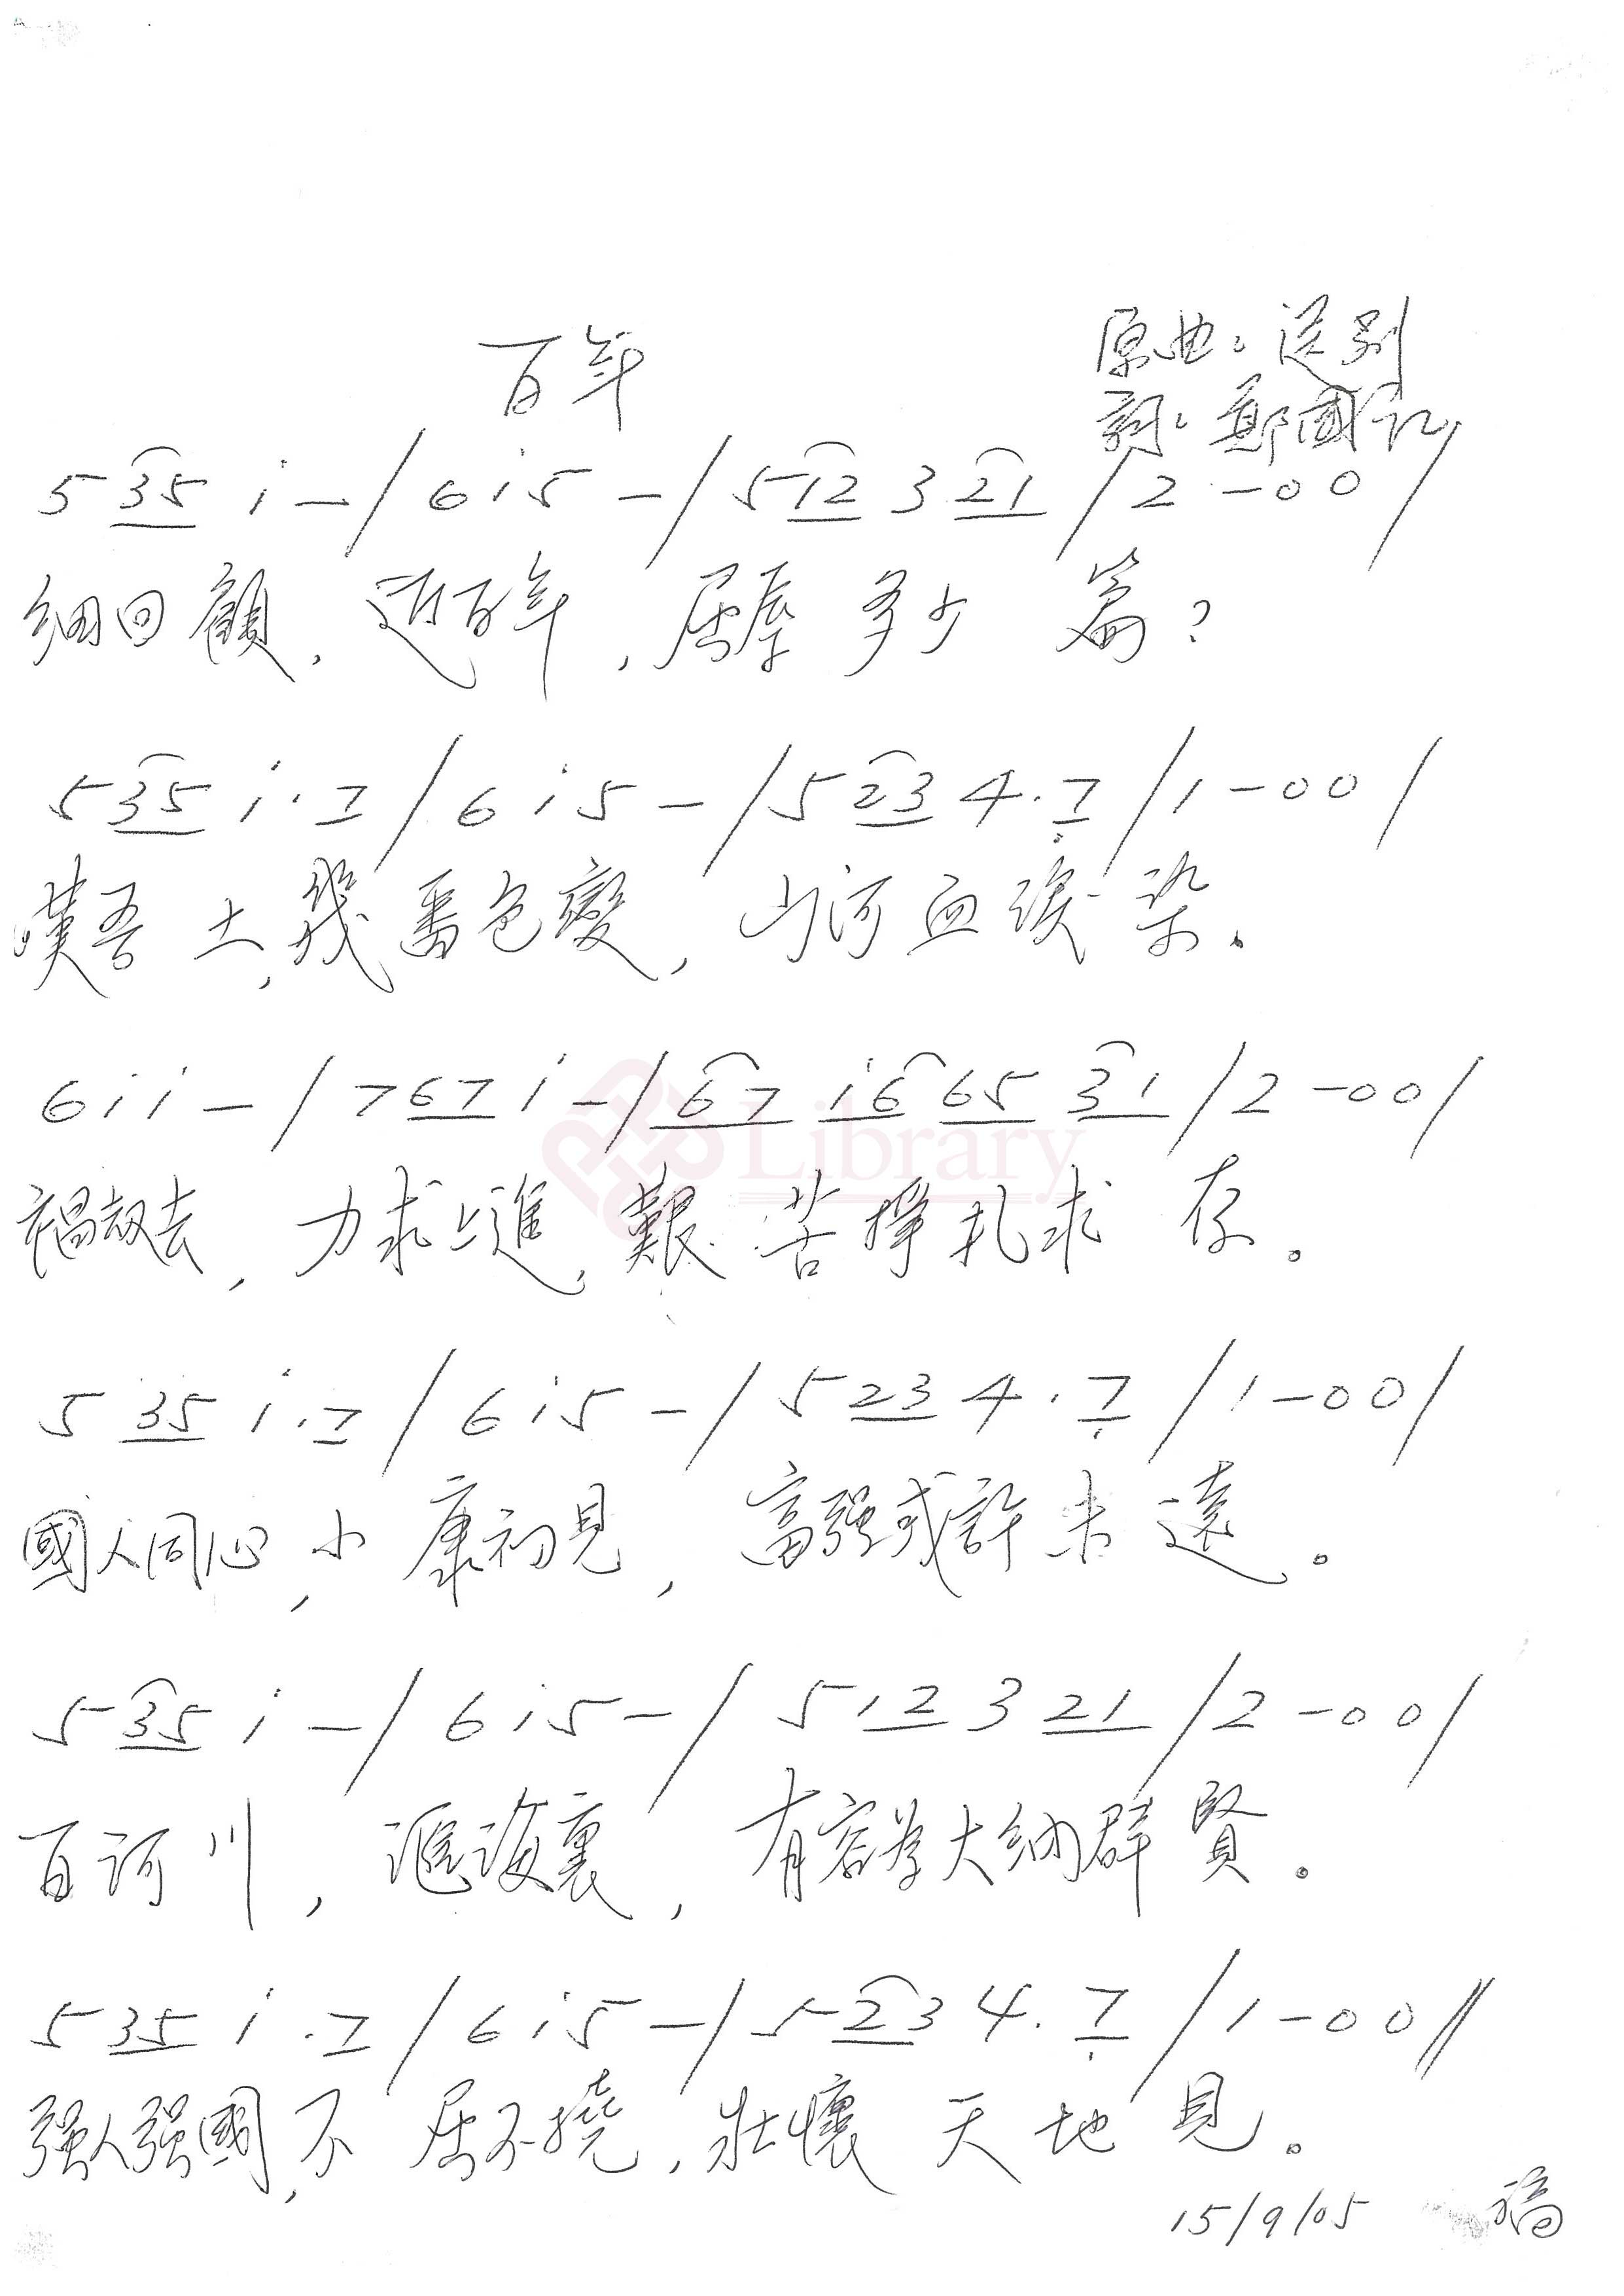 百年
原曲：送別
詞：鄭國江
5 35 i - / 6 i 5 - / 5 12 3 21 / 2 - 0 0 /
細回顧，近百年，屈辱多少篇？
5 35 i · 7 / 6 i 5 - / 5 23 4 · 7̣ / 1 - 0 0 /
嘆吾土，幾番色變，山河血淚染。
6 i i - / 7 67 i - / 67 i6 65 31 / 2 - 0 0 /
禍劫去，力求上進，艱苦掙扎求存。
5 35 i · 7 / 6 i 5 - / 5 23 4 · 7̣ / 1 - 0 0 /
國人同心，小康初見，富强或許未遠。
5 35 i - / 6 i 5 - / 5 12 3 21 / 2 - 0 0 /
百河川，滙海裏，有容為大納群賢。
5 35 i · 7 / 6 i 5 - / 5 23 4 · 7̣ / 1 - 0 0 //
强人强國，不屈不撓，壯懷天地見。
15/9/05 稿
Library